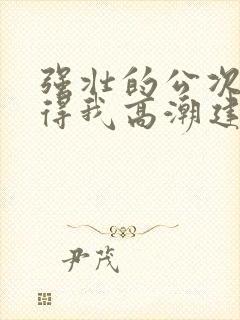 强壮的公次
得我高潮连
尹茂